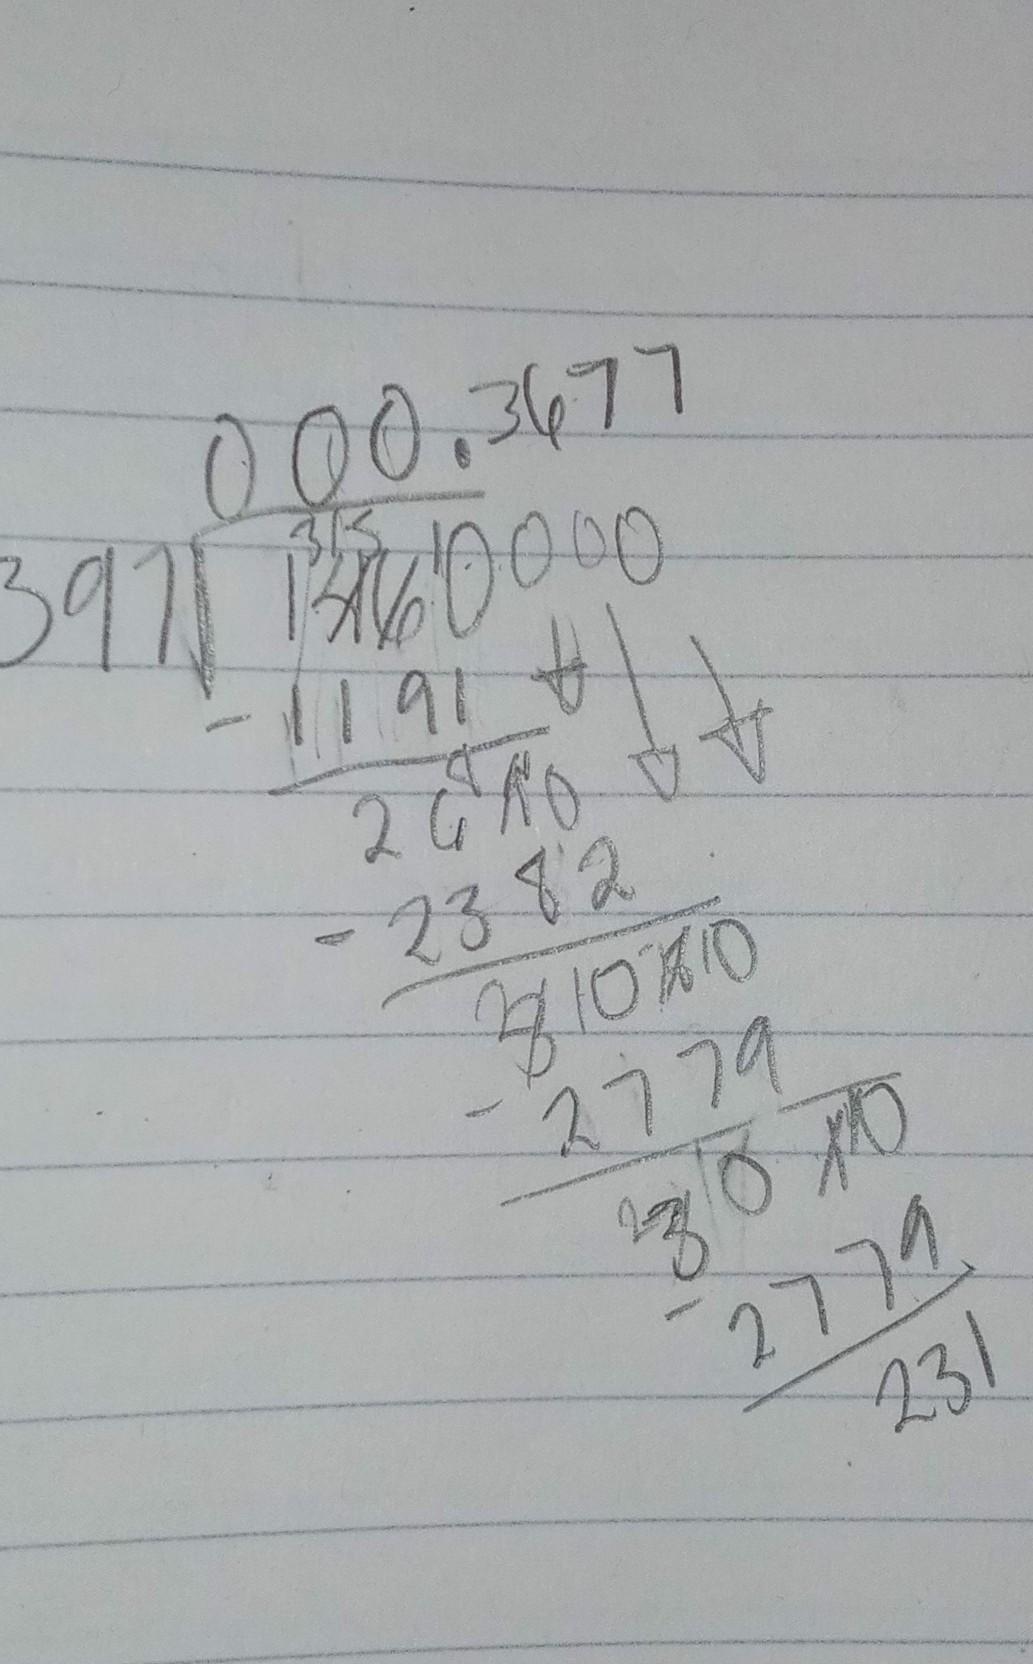 000.3677
315
397 1460000
- 1191
2690
- 2382
3080
- 2779
3010
- 2779
231